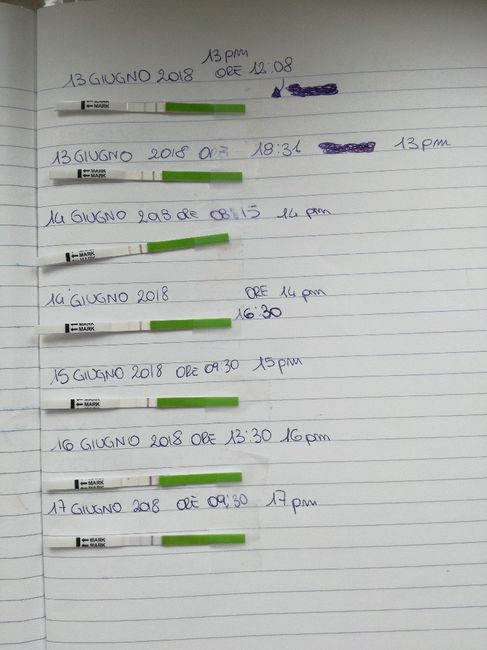 13 pm
13 GIUGNO 2018 ORE 12:08
MARK
13 GIUGNO 2018 ORE 18:31 13 pm
MARK
14 GIUGNO 2018 ORE 08:15 14 pm
MARK
14 GIUGNO 2018 ORE 14 pm
16:30
MARK
15 GIUGNO 2018 ORE 09:30 15 pm
MARK
16 GIUGNO 2018 ORE 13:30 16 pm
MARK
17 GIUGNO 2018 ORE 09:30 17 pm
MARK